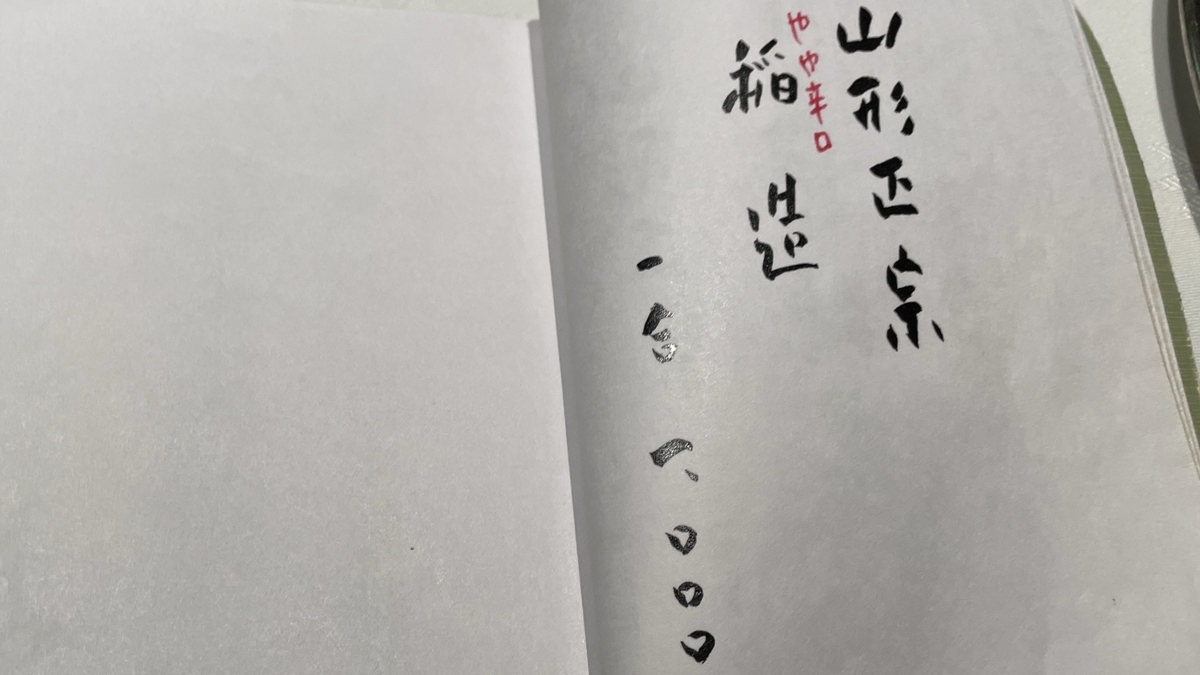 山形正宗
やや辛口
稲造
一合 一、〇〇〇